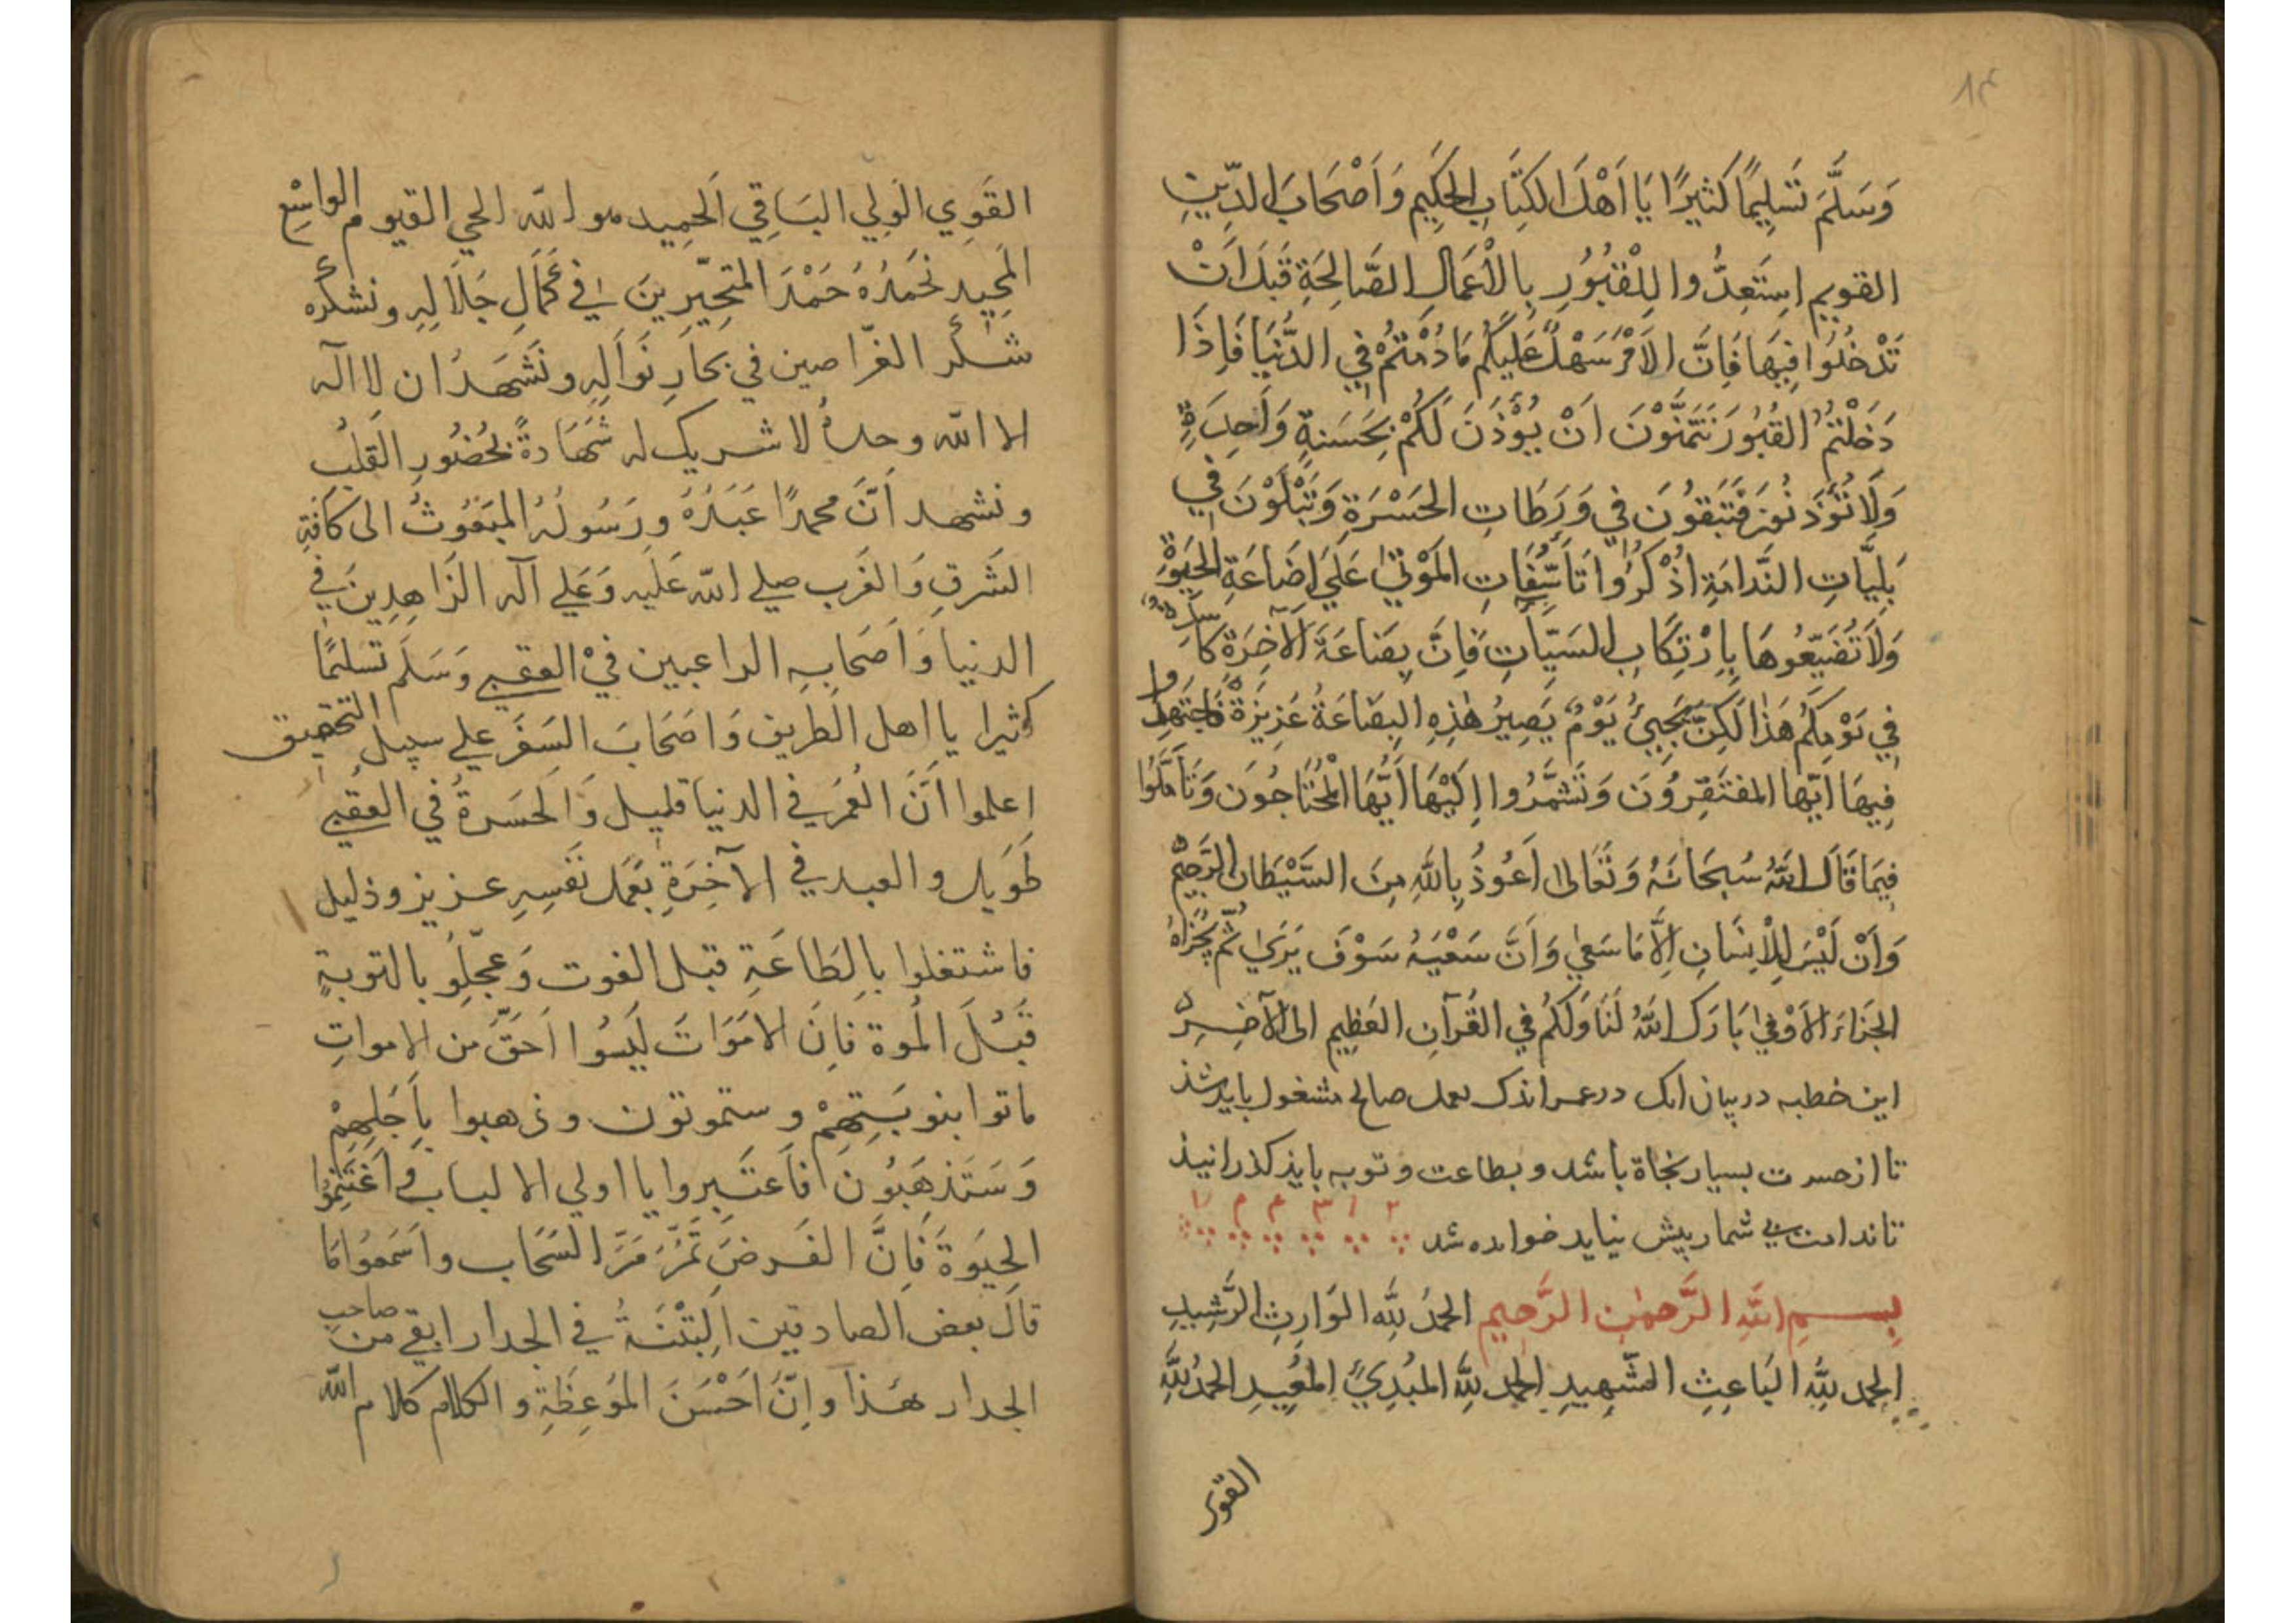 ١٤
وَسَلَّمَ تَسْلِيمًا كَثِيرًا يَا اَهْلَ الكِتَابِ الحَكِيمِ وَاَصْحَابَ الدِّينِ
القويم اِستَعِدُّوا لِلْقُبُورِ بِالْاَعْمَالِ الصَّالِحَةِ قَبْلَ اَنْ
تَدْخُلُوا فِيهَا فَاِنَّ الاَمْرَ سَهْلٌ عَلَيكُم مَا دُمْتُمْ فِي الدُّنْيَا فَاِذَا
دَخَلْتُمُ القُبُورَ تَتَمَنَّوْنَ اَنْ يُؤْذَنَ لَكُمْ بِحَسَنَةٍ وَاحِدَةٍ
وَلَا تُؤْذَنُونَ فَتَبْقُونَ فِي وَرَطَاتِ الحَسْرَةِ وَتُبْلَوْنَ فِي
بَلِيَّاتِ النَّدَامَةِ اُذْكُرُوا تَأَسُّفَاتِ المَوْتٰي عَلَي اِضَاعَةِ الحَيٰوةِ
وَلَا تُضَيِّعُوهَا بِاِرْتِكَابِ السَيِّاٰتِ فَاِنَّ بِضَاعَةَ الآخِرَةِ كَاسِدَةٌ
فِي يَوْمِكُم هَذَا لَكِنْ يَجِيئُ يَوْمٌ يَصِيرُ هٰذِهِ البِضَاعَةُ عَزِيزَةً فَاجْتَهِدُوا
فِيهَا اَيُّهَا المفتَقِرُونَ وَتَشَمَّرُوا اِلَيْهَا اَيُّهَا المُحْتَاجُونَ وَتَأَمَّلُوا
فِيمَا قَالَ اللهُ سُبحَانَهُ وَتَعَالىٰ اَعُوذُ بِاللهِ مِنَ الشَّيْطَانِ الرَّجِيمِ
وَاَنْ لَيْسَ لِلْاِنسَانِ اِلَّا مَا سَعٰي وَاَنَّ سَعْيَهُ سَوْفَ يَرٰي ثُمَّ يُجْزَاهُ
الجَزَاءَ الاَوْفٰي بَارَكَ اللهُ لَنَا وَلَكُمْ فِي القُرآنِ العَظِيمِ الى الآخِرِ
اين خطبه در بيان انك در عمر اندك بعمل صالح مشغول بايد شد
تا از حسرت بسيار نجاة باشد و بطاعت و توبه بايد كذرانيد
تا ندامت بي شمار پيش نيايد خوانده شد
بِسمِ اللهِ الرَّحمٰنِ الرَّحِيمِ الحمدُ لِلّٰهِ الوَارِثِ الرَّشِيدِ
الحمد لِلّٰهِ البَاعِثِ الشَّهِيدِ الحمد لِلّٰهِ المُبْدِئِ المُعِيدِ الحَمدُ لِلّٰهِ
القوي
القَوِي الوَلِي البَاقِي الحَمِيد هو الله الحي القيوم الواسِعِ
المَجِيد نَحْمَدُهُ حَمْدَ المتحَيِّرِينَ في كَمَالِ جَلَالِهِ و نشكُره
شكر الغوّاصين في بحَارِ نَوَالِهِ و نَشْهَدُ ان لا اله
الا الله وحدهُ لا شريك له شَهَادةً بحُضُورِ القَلْبِ
و نشهد اَنَّ محمدًا عَبدُهُ وَرَسُولُهُ المَبعُوثُ الى كافَّةِ
الشَرقِ وَالغَرب صلي الله عَليه وَعَلي آله الزَاهِدِينَ في
الدنيا وَاَصحَابِهِ الراغبين في العقبي وَسَلَم تسلِيمًا
كثيرا يا اهل الطريق وَاَصحَابَ السَفَر علي سبيل التحقيق
اِعلموا اَنَّ العُمرَ في الدنيا قليل وَالحَسرةُ في العُقبي
طَوِيل و العبد في الآخِرَةِ بعَمَل نَفسِهِ عزيز وذليل
فاشتغلوا بِالطَاعَةِ قبل الفوت وَعَجِّلُوا بالتوبةِ
قَبْلَ المُوة فاِنَ الامَوَاتَ لَيسُوا اَحَقَّ من الامواتِ
ماتوا بنوبتِهِمْ و ستموتون و ذهبوا بِاَجَلِهِمْ
وَسَتَذهَبُونَ فاَعتبِروا يا اولي الالباب و اَغْتَنِمُوا
الحيَوةَ فَاِنَّ الفَرضَ تَمُرُّ مَرَّ السَحَابِ و اسَمعُوا مَا
قالَ بعض الصادقين اللِبْنَةُ في الجدار ابقي من صاحب
الجدار هَذا وَاِنَّ اَحْسَنَ المَوعِظَةِ و الكلام كلام الله